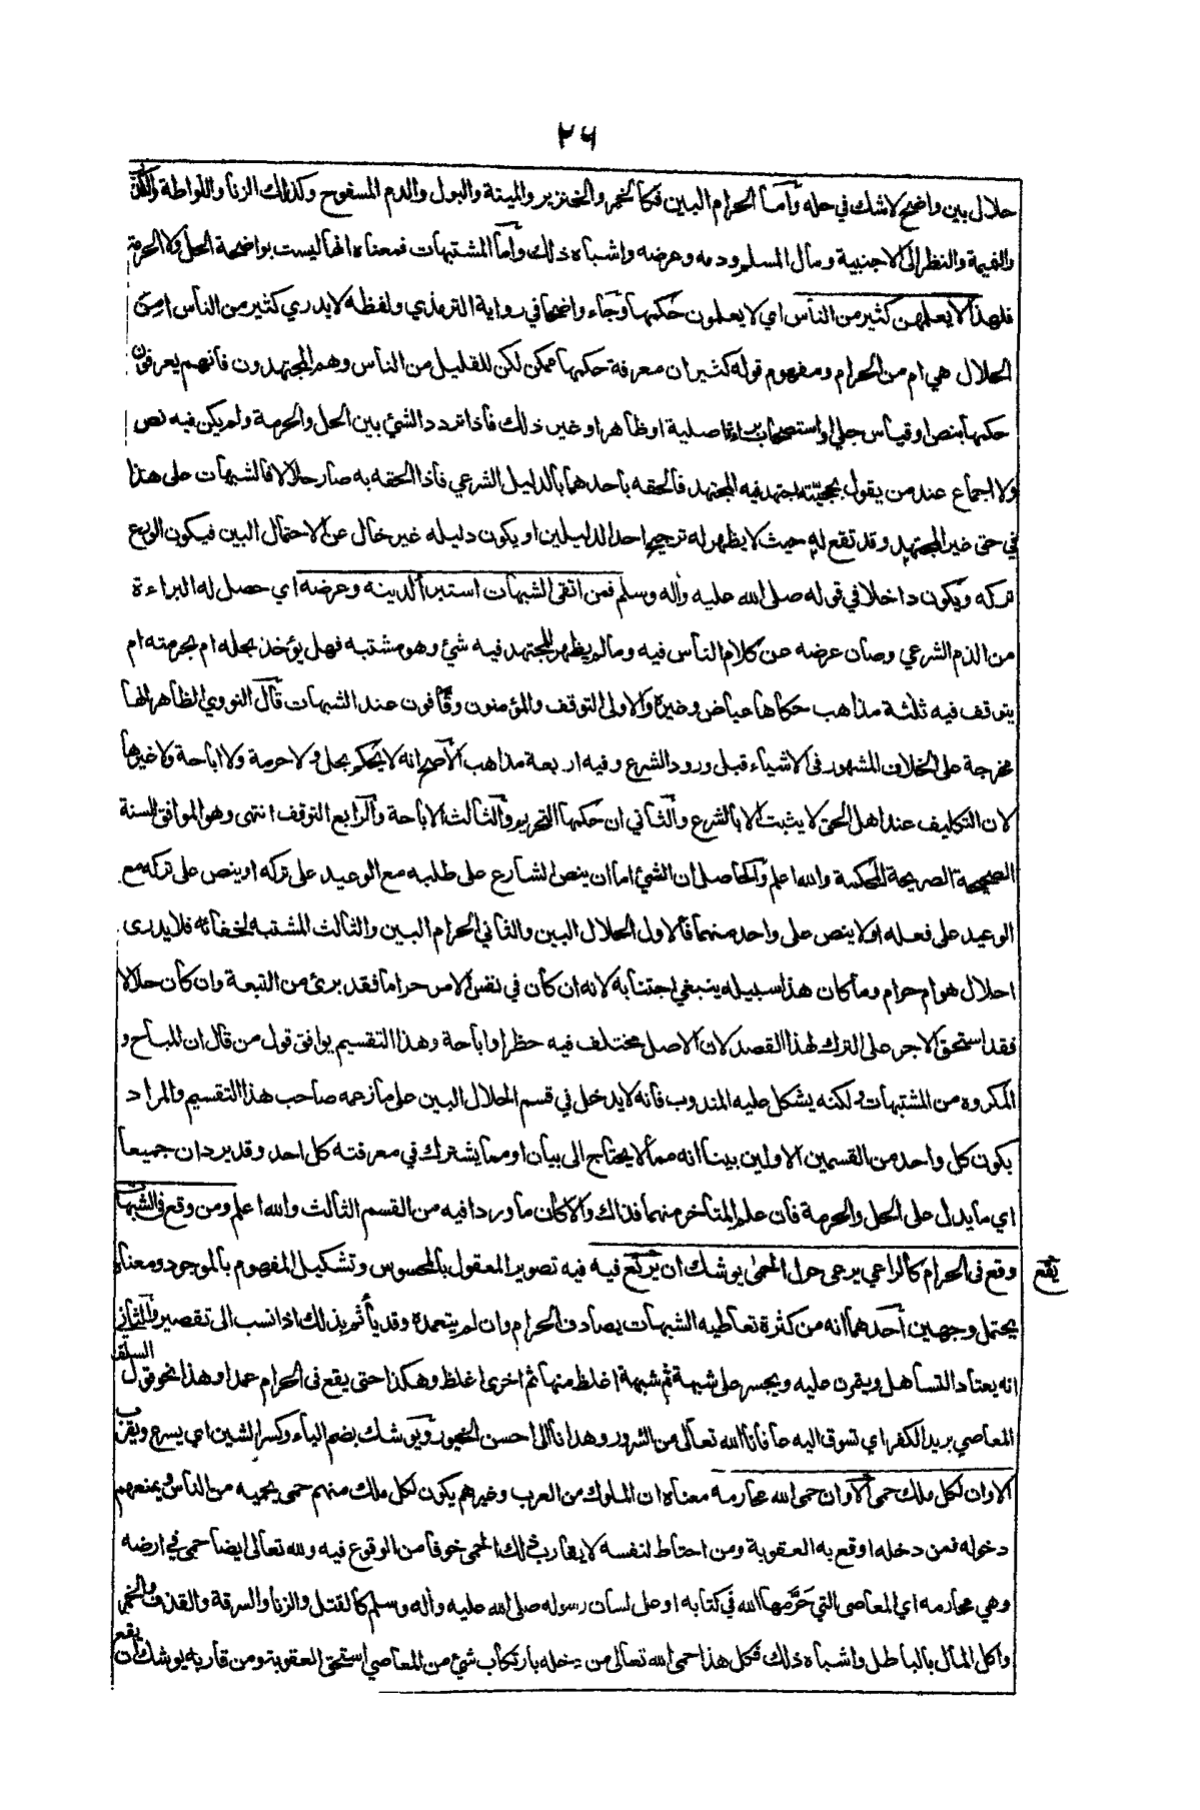 ٢٦
حلال بين واضح لاشك في حله وأما الحرام البين فكالخمر والخنزير والميتة والبول والدم المسفوح وكذلك الزنا واللواطة والكذب
والغيبة والنظر الى الاجنبية ومال المسلم ودمه وعرضه واشباه ذلك وأما المشتبهات فمعناه انها ليست بواضحة الحل ولا الحرمة
فلهذا لا يعلمهن كثير من الناس اي لا يعلمون حكمها وجاء واضحا في رواية الترمذي ولفظه لا يدري كثير من الناس امن
الحلال هي ام من الحرام ومفهوم قوله كثير ان معرفة حكمها ممكن لكن للقليل من الناس وهم المجتهدون فانهم يعرفون
حكمها بنص او قياس جلي او استصحاب براءة اصلية او ظاهر او غير ذلك فاذا تردد الشئ بين الحل والحرمة ولم يكن فيه نص
ولا اجماع عند من يقول بحجيته اجتهد فيه المجتهد فالحقه باحدهما بالدليل الشرعي فاذا الحقه به صار حلالا فالشبهات على هذا
في حق غير المجتهد وقد تقع له حيث لا يظهر له ترجيح احد الدليلين او يكون دليله غير خال عن الاحتمال البين فيكون الورع
تركه ويكون داخلا في قوله صلى الله عليه وأله وسلم فمن اتقى الشبهات استبرأ لدينه وعرضه اي حصل له البراءة
من الذم الشرعي وصان عرضه عن كلام الناس فيه وما لم يظهر للمجتهد فيه شئ وهو مشتبه فهل يؤخذ بحله ام بحرمته ام
يتوقف فيه ثلثة مذاهب حكاها عياض وغيره والاولى التوقف والمؤمنون وقافون عند الشبهات قال النووي الظاهر انها
مخرجة على الخلاف المشهور في الاشياء قبل ورود الشرع وفيه اربعة مذاهب الاصح انه لا يحكم بحل ولا حرمة ولا اباحة ولا غيرها
لان التكليف عند اهل الحق لا يثبت الا بالشرع والثاني ان حكمها التحريم والثالث الاباحة والرابع التوقف انتهى وهو الموافق للسنة
الصحيحة الصريحة المحكمة والله اعلم والحاصل ان الشئ اما ان ينص الشارع على طلبه مع الوعيد على تركه او ينص على تركه مع
الوعيد على فعله او لا ينص على واحد منهما فالاول الحلال البين والثاني الحرام البين والثالث المشتبه لخفائه فلا يدرى
احلال هو ام حرام وما كان هذا سبيله ينبغي اجتنابه لانه ان كان في نفس الامر حراما فقد برئ من التبعة وان كان حلالا
فقد استحق الاجر على الترك لهذا القصد لان الاصل مختلف فيه حظرا واباحة وهذا التقسيم يوافق قول من قال ان المباح و
المكروه من المشتبهات ولكنه يشكل عليه المندوب فانه لا يدخل في قسم الحلال البين على ما زعمه صاحب هذا التقسيم والمراد
بكون كل واحد من القسمين الاولين بينا انه مما لا يحتاج الى بيان او مما يشترك في معرفته كل احد وقد يردان جميعا
اي ما يدل على الحل والحرمة فان علم المتأخر منهما فذاك والا كان ما وردا فيه من القسم الثالث والله اعلم ومن وقع في الشبهات
وقع في الحرام كالراعي يرعى حول الحمى يوشك ان يرتع فيه فيه تصوير المعقول بالمحسوس وتشكيل المفهوم بالموجود ومعناه
يقع
يحتمل وجهين أحدهما انه من كثرة تعاطيه الشبهات يصادف الحرام وان لم يتعمده وقد يأثم بذلك اذا نسب الى تقصير والثاني
انه يعتاد التساهل ويتمرن عليه ويجسر على شبهة ثم شبهة اغلظ منها ثم اخرى اغلظ وهكذا حتى يقع في الحرام عمدا وهذا نحو قول السلف
المعاصي بريد الكفر اي تسوق اليه عافانا الله تعالى من الشرور وهدانا الى احسن الخيور ويوشك بضم الياء وكسر الشين اي يسرع ويقرب
الا وان لكل ملك حمى الا وان حمى الله محارمه معناه ان الملوك من العرب وغيرهم يكون لكل ملك منهم حمى يحميه من الناس ويمنعهم
دخوله فمن دخله اوقع به العقوبة ومن احتاط لنفسه لا يقارب ذلك الحمى خوفا من الوقوع فيه ولله تعالى ايضا حمى في ارضه
وهي محارمه اي المعاصي التي حرمها الله في كتابه او على لسان رسوله صلى الله عليه وأله وسلم كالقتل والزنا والسرقة والقذف والخمر
واكل المال بالباطل واشباه ذلك فكل هذا حمى الله تعالى من دخله بارتكاب شئ من المعاصي استحق العقوبة ومن قاربه يوشك ان يقع